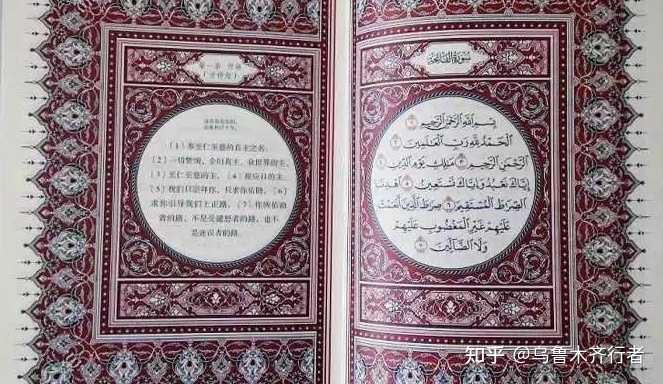 第一章 开端
（法谛哈）
（1）奉至仁至慈的真主之名：
（2）一切赞颂，全归真主，众世界的主，
（3）至仁至慈的主，（4）报应日的主。
（5）我们只崇拜你，只求你佑助，（6）
求你引导我们上正路，（7）你所佑助
者的路，不是受谴怒者的路，也不
是迷误者的路。
سُورَةُ الفَاتِحَةِ
بِسْمِ اللَّهِ الرَّحْمَٰنِ الرَّحِيمِ ١
الْحَمْدُ لِلَّهِ رَبِّ الْعَالَمِينَ ٢
الرَّحْمَٰنِ الرَّحِيمِ ٣ مَٰلِكِ يَوْمِ الدِّينِ ٤
إِيَّاكَ نَعْبُدُ وَإِيَّاكَ نَسْتَعِينُ ٥ اهْدِنَا
الصِّرَاطَ الْمُسْتَقِيمَ ٦ صِرَاطَ الَّذِينَ أَنْعَمْتَ
عَلَيْهِمْ غَيْرِ الْمَغْضُوبِ عَلَيْهِمْ
وَلَا الضَّالِّينَ ٧
知乎 @乌鲁木齐行者